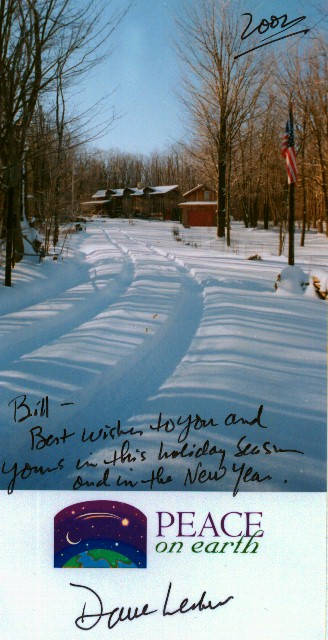 2002
Bill -
Best wishes to you and
yours in this holiday season
and in the New Year.
PEACE
on earth
Dave